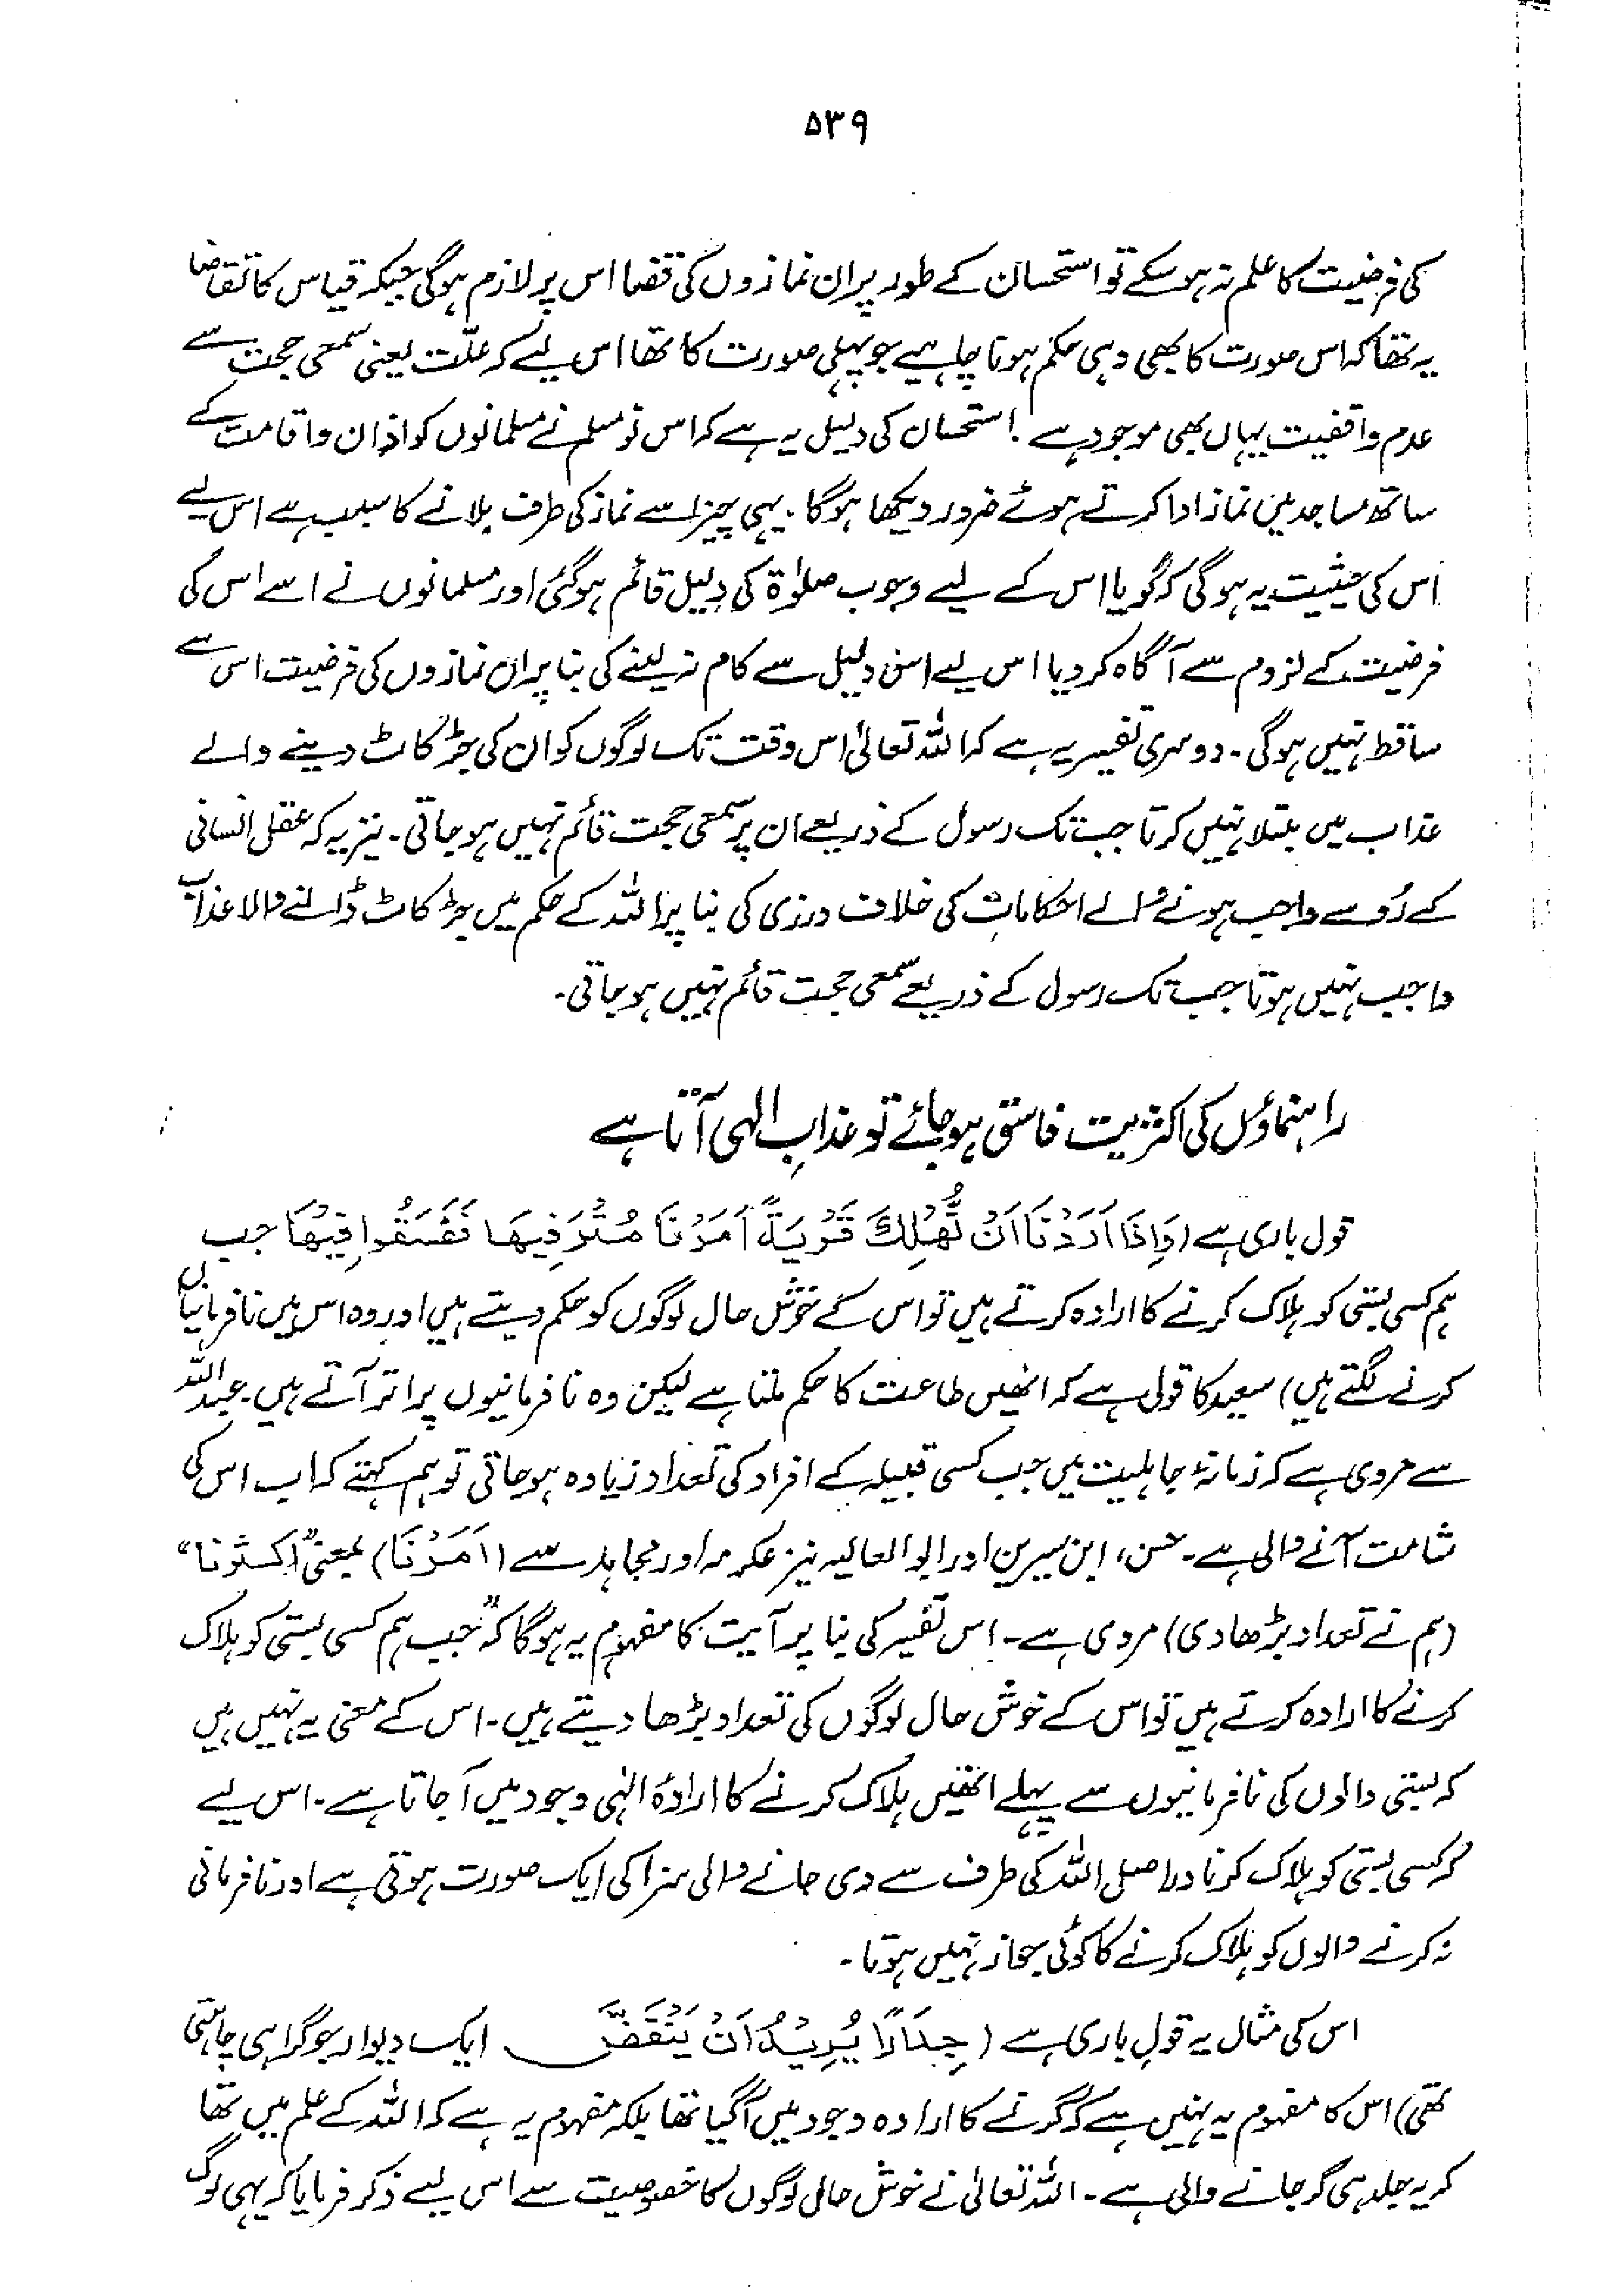 ۵۳۹
کی فرضیت کا علم نہ ہو سکے تو استحسان کے طور پر ان نمازوں کی قضا اس پر لازم ہوگی جبکہ قیاس کا تقاضا
یہ تھا کہ اس صورت کا بھی وہی حکم ہونا چاہیے جو پہلی صورت کا تھا اس لیے کہ علّت یعنی سمعی حجت سے
عدم واقفیت یہاں بھی موجود ہے۔ استحسان کی دلیل یہ ہے کہ اس نومسلم نے مسلمانوں کو اذان واقامت کے
ساتھ مساجد میں نماز ادا کرتے ہوئے ضرور دیکھا ہوگا۔ یہی چیز اسے نماز کی طرف بلانے کا سبب ہے اس لیے
اس کی حیثیت یہ ہوگی کہ گویا اس کے لیے وجوب صلوٰۃ کی دلیل قائم ہوگئی اور مسلمانوں نے اسے اس کی
فرضیت کے لزوم سے آگاہ کر دیا اس لیے اس دلیل سے کام نہ لینے کی بنا پر ان نمازوں کی فرضیت اس سے
ساقط نہیں ہوگی۔ دوسری تفسیر یہ ہے کہ اللہ تعالیٰ اس وقت تک لوگوں کو ان کی جڑ کاٹ دینے والے
عذاب میں مبتلا نہیں کرتا جب تک رسول کے ذریعے ان پر سمعی حجت قائم نہیں ہو جاتی۔ نیز یہ کہ عقل انسانی
کے رُو سے واجب ہونے والے احکامات کی خلاف ورزی کی بنا پر اللہ کے حکم میں جڑ کاٹ ڈالنے والا عذاب
واجب نہیں ہوتا جب تک رسول کے ذریعے سمعی حجت قائم نہیں ہو جاتی۔
راہنماؤں کی اکثریت فاسق ہو جائے تو عذابِ الٰہی آتا ہے
قول باری ہے (وَاِذَا اَرَدْنَا اَنْ نُّهْلِكَ قَرْيَةً اَمَرْنَا مُتْرَفِيهَا فَفَسَقُوا فِيْهَا جب
ہم کسی بستی کو ہلاک کرنے کا ارادہ کرتے ہیں تو اس کے خوش حال لوگوں کو حکم دیتے ہیں اور وہ اس میں نافرمانیاں
کرنے لگتے ہیں) سعید کا قول ہے کہ انھیں طاعت کا حکم ملتا ہے لیکن وہ نافرمانیوں پر اتر آتے ہیں۔ عبداللہ
سے مروی ہے کہ زمانۂ جاہلیت میں جب کسی قبیلہ کے افراد کی تعداد زیادہ ہو جاتی تو ہم کہتے کہ اب اس کی
شامت آنے والی ہے۔ حسن، ابن سیرین اور ابو العالیہ نیز عکرمہ اور مجاہد سے (اَمَرْنَا) بمعنی "اکثرنا"
(ہم نے تعداد بڑھا دی) مروی ہے۔ اس تفسیر کی بنا پر آیت کا مفہوم یہ ہوگا کہ "جب ہم کسی بستی کو ہلاک
کرنے کا ارادہ کرتے ہیں تو اس کے خوش حال لوگوں کی تعداد بڑھا دیتے ہیں۔ اس کے معنی یہ نہیں ہیں
کہ بستی والوں کی نافرمانیوں سے پہلے انھیں ہلاک کرنے کا ارادۂ الٰہی وجود میں آ جاتا ہے۔ اس لیے
کہ کسی بستی کو ہلاک کرنا دراصل اللہ کی طرف سے دی جانے والی سزا کی ایک صورت ہوتی ہے اور نافرمانی
نہ کرنے والوں کو ہلاک کرنے کا کوئی جواز نہیں ہوتا۔
اس کی مثال یہ قولِ باری ہے (جِدَارًا يُرِيْدُ اَنْ يَنْقَضَّ ایک دیوار جو گرا ہی چاہتی
تھی) اس کا مفہوم یہ نہیں ہے کہ گرنے کا ارادہ وجود میں آگیا تھا بلکہ مفہوم یہ ہے کہ اللہ کے علم میں تھا
کہ یہ جلد ہی گر جانے والی ہے۔ اللہ تعالیٰ نے خوش حال لوگوں کا خصوصیت سے اس لیے ذکر فرمایا کہ یہی لوگ